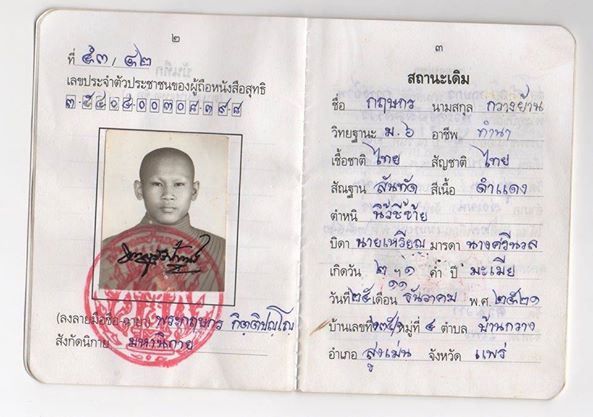 ๒
ที่ ๕๓/๔๒
เลขประจำตัวประชาชนของผู้ถือหนังสือสุทธิ
(ลงลายมือชื่อ-ฉายา) พระกฤษกร กิตฺติปญฺโญ
สังกัดนิกาย มหานิกาย
๓
สถานะเดิม
ชื่อ กฤษกร นามสกุล กวางย้าน
วิทยฐานะ ม.๖ อาชีพ ทำนา
เชื้อชาติ ไทย สัญชาติ ไทย
สัณฐาน สันทัด สีเนื้อ ดำแดง
ตำหนิ นิ้วชี้ซ้าย
บิดา นายเหรียญ มารดา นางศรีนวล
เกิดวัน ๒ ฯ ๑ ค่ำ ปี มะเมีย
๑๑
วันที่ ๒๕ เดือน ธันวาคม พ.ศ. ๒๕๒๑
บ้านเลขที่ หมู่ที่ ๔ ตำบล บ้านกวาง
อำเภอ สูงเม่น จังหวัด แพร่